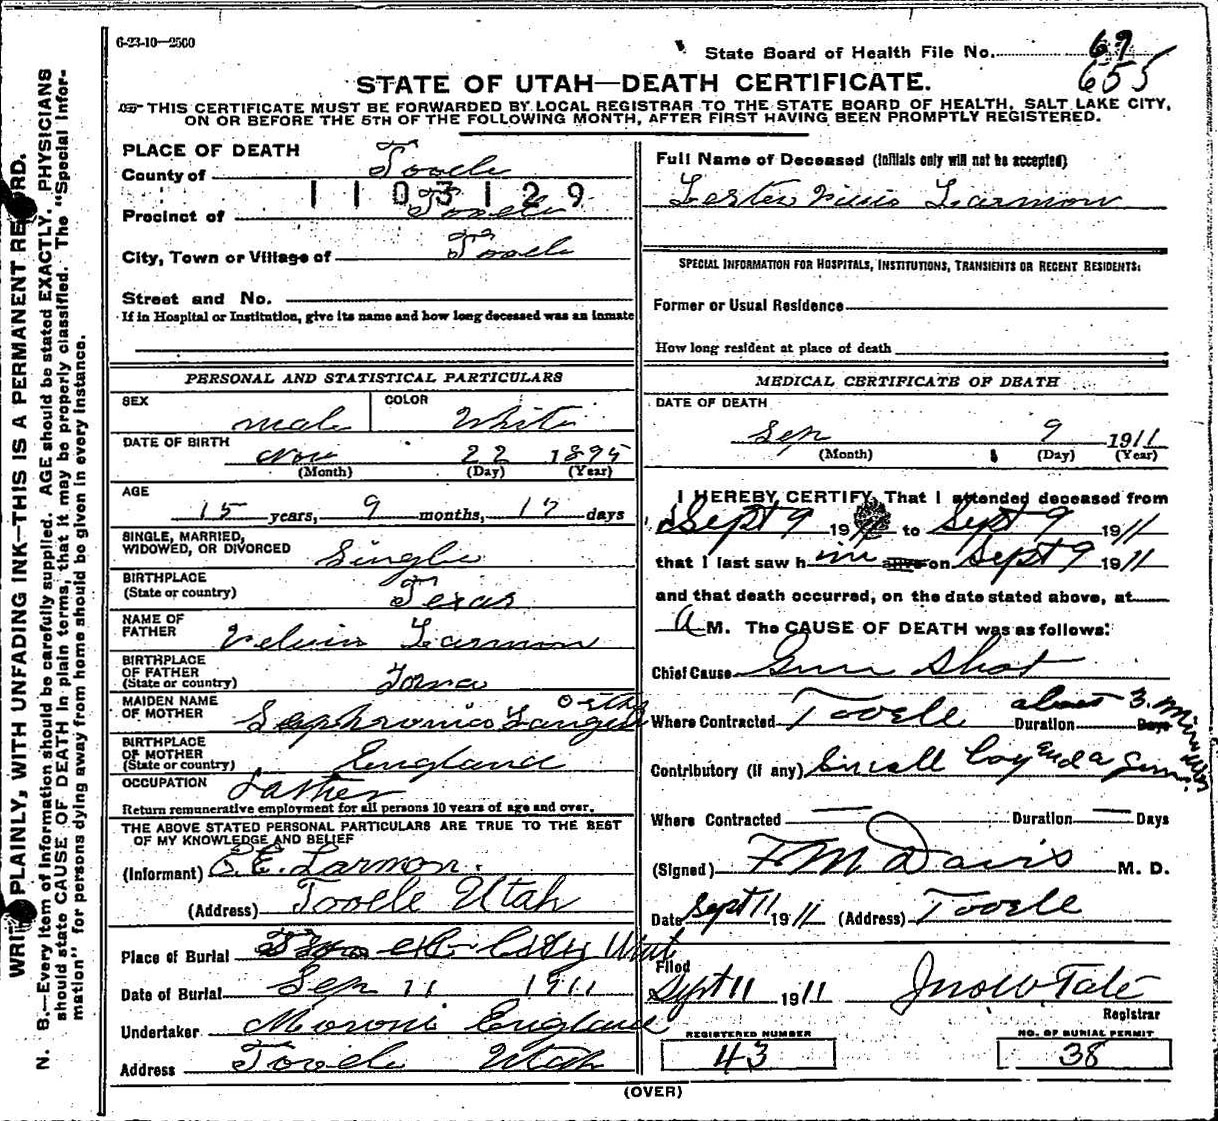 6-23-10—2500
State Board of Health File No. 69
655
STATE OF UTAH—DEATH CERTIFICATE.
THIS CERTIFICATE MUST BE FORWARDED BY LOCAL REGISTRAR TO THE STATE BOARD OF HEALTH, SALT LAKE CITY,
ON OR BEFORE THE 5TH OF THE FOLLOWING MONTH, AFTER FIRST HAVING BEEN PROMPTLY REGISTERED.
WRITE PLAINLY, WITH UNFADING INK—THIS IS A PERMANENT RECORD.
N. B.—Every item of information should be carefully supplied. AGE should be stated EXACTLY. PHYSICIANS
should state CAUSE OF DEATH in plain terms, that it may be properly classified. The "Special Infor-
mation" for persons dying away from home should be given in every instance.
PLACE OF DEATH
County of Tooele
1103129
Precinct of Tooele
City, Town or Village of Tooele
Street and No.
If in Hospital or Institution, give its name and how long deceased was an inmate
PERSONAL AND STATISTICAL PARTICULARS
SEX COLOR
Male White
DATE OF BIRTH
Nov 22 1895
(Month) (Day) (Year)
AGE
15 years, 9 months, 17 days
SINGLE, MARRIED,
WIDOWED, OR DIVORCED Single
BIRTHPLACE
(State or country) Texas
NAME OF
FATHER Larmon
BIRTHPLACE
OF FATHER
(State or country)
MAIDEN NAME
OF MOTHER Sephronia
BIRTHPLACE
OF MOTHER
(State or country) England
OCCUPATION
Return remunerative employment for all persons 10 years of age and over.
THE ABOVE STATED PERSONAL PARTICULARS ARE TRUE TO THE BEST
OF MY KNOWLEDGE AND BELIEF
(Informant) E. E. Larmon.
(Address) Tooele Utah
Place of Burial City Utah
Date of Burial Sep 11 1911
Undertaker Moroni England
Address Tooele Utah
Full Name of Deceased (Initials only will not be accepted)
Lester Larmon
SPECIAL INFORMATION FOR HOSPITALS, INSTITUTIONS, TRANSIENTS OR RECENT RESIDENTS:
Former or Usual Residence
How long resident at place of death
MEDICAL CERTIFICATE OF DEATH
DATE OF DEATH
Sep 9 1911
(Month) (Day) (Year)
I HEREBY CERTIFY, That I attended deceased from
Sept 9 19 to Sept 9 1911
that I last saw him alive on Sept 9 1911
and that death occurred, on the date stated above, at
A M. The CAUSE OF DEATH was as follows:
Chief Cause Gun Shot
Where Contracted Tooele Duration about 3 minutes Days
Contributory (if any) Small boy and a Gun.
Where Contracted — Duration — Days
(Signed) F M Davis M. D.
Date Sept 11 1911 (Address) Tooele
Filed
Sept 11 1911 Jno W Tate
Registrar
REGISTERED NUMBER NO. OF BURIAL PERMIT
43 38
(OVER)